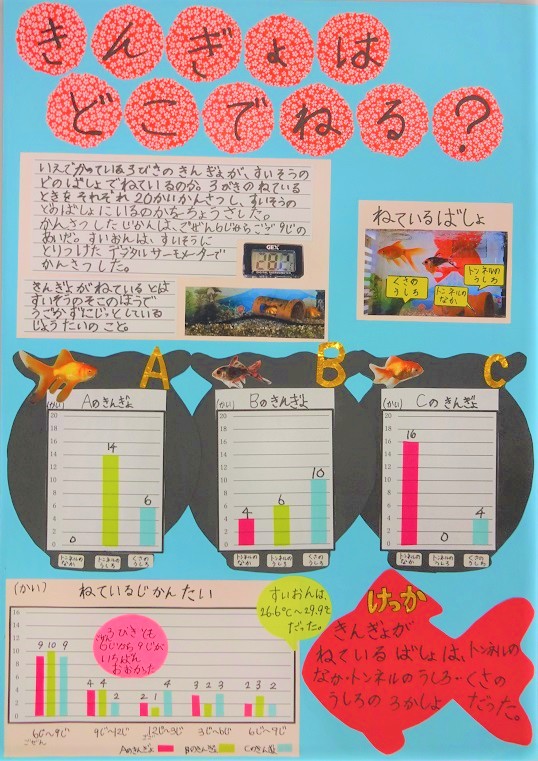 きんぎょは
どこでねる?
いえでかっている3びきのきんぎょが、すいそうの
どのばしょでねているのか。3びきのねている
ときをそれぞれ20かいかんさつし、すいそうの
どのばしょにいるのかをちょうさした。
かんさつしたじかんは、ごぜん6じからごご9じの
あいだ。すいおんは、すいそうに
とりつけたデジタルサーモメーターで
かんさつした。
GEX
きんぎょがねているとは
すいそうのそこのほうで
うごかずにじっとしている
じょうたいのこと。
ねているばしょ
くさの
うしろ
トンネルの
うしろ
トンネルの
なか
A
(かい)
Aのきんぎょ
20
18
16
14
12
10
8
6
4
2
0
0
14
6
トンネルの
なか
トンネルの
うしろ
くさの
うしろ
B
(かい)
Bのきんぎょ
20
18
16
14
12
10
8
6
4
2
0
4
6
10
トンネルの
なか
トンネルの
うしろ
くさの
うしろ
C
(かい)
Cのきんぎょ
20
18
16
14
12
10
8
6
4
2
0
16
0
4
トンネルの
なか
トンネルの
うしろ
くさの
うしろ
(かい)
ねているじかんたい
16
14
12
10
8
6
4
2
0
9 10 9
4 4 2
2 1 4
3 2 3
2 3 2
6じ〜9じ
9じ〜12じ
12じ〜3じ
3じ〜6じ
6じ〜9じ
ごぜん
ごご
Aのきんぎょ
Bのきんぎょ
Cのきんぎょ
3びきとも
ごぜん
6じから9じが
いちばん
おおかった
すいおんは、
26.6℃〜29.9℃
だった。
けっか
きんぎょが
ねているばしょは、トンネルの
なか・トンネルのうしろ・くさの
うしろの3かしょだった。